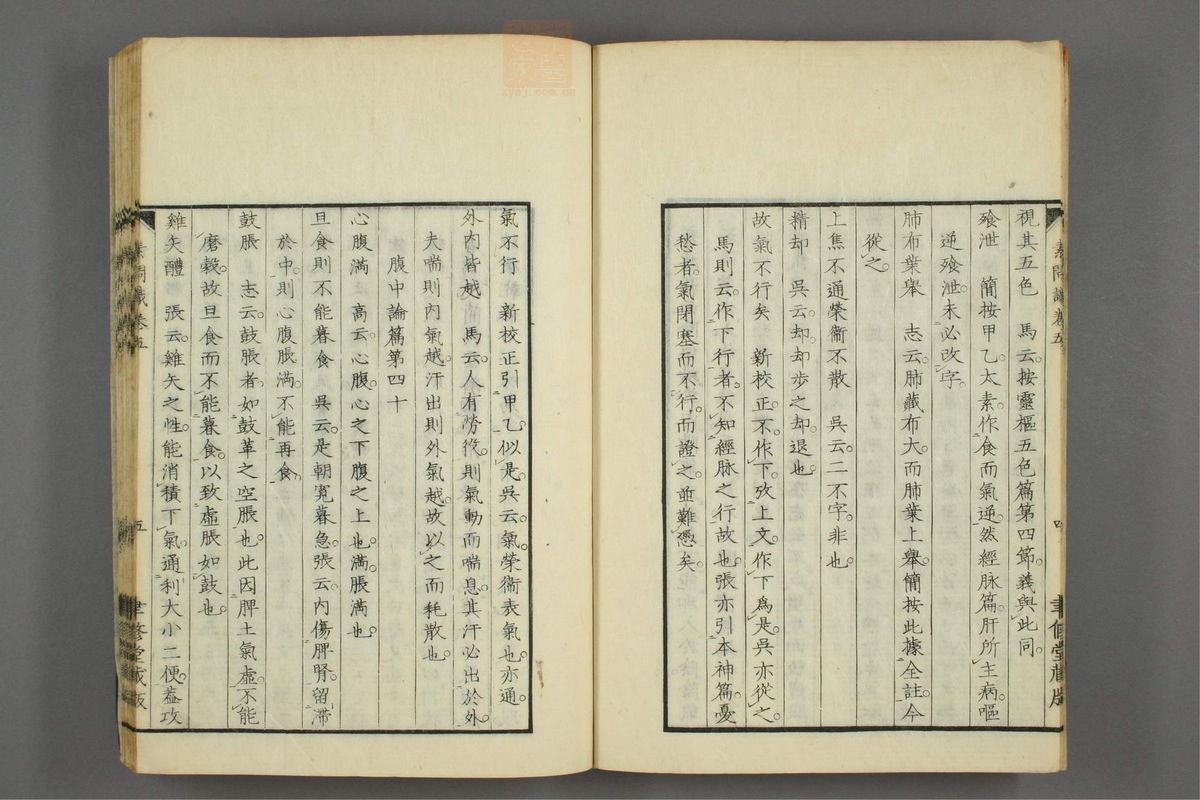 視其五色　馬云按靈樞五色篇第四節義與此同
飱泄　簡按甲乙太素作食而氣逆然經脉篇肝所主病嘔
逆飱泄未必改字
肺布葉舉　志云肺藏布大而肺葉上舉簡按此據全註今
從之
上焦不通榮衞不散　吳云二不字非也
精却　吳云却却步之却退也
故氣不行矣　新校正不作下攷上文作下爲是吳亦從之
馬則云作下行者不知經脉之行故也張亦引本神篇憂
愁者氣閉塞而不行而證之並難憑矣
素問識卷五
聿修堂藏版
氣不行　新校正引甲乙似是吳云氣榮衞表氣也亦通
外內皆越　馬云人有勞役則氣動而喘息其汗必出於外
夫喘則內氣越汗出則外氣越故以之而耗散也
腹中論篇第四十
心腹滿　高云心腹心之下腹之上也滿脹滿也
旦食則不能暮食　吳云是朝寬暮急張云內傷脾腎留滯
於中則心腹脹滿不能再食
鼓脹　志云鼓脹者如鼓革之空脹也此因脾土氣虛不能
磨穀故旦食而不能暮食以致虛脹如鼓也
雞矢醴　張云雞矢之性能消積下氣通利大小二便葢攻
素問識卷五
五
聿修堂藏版
zysj.com.cn